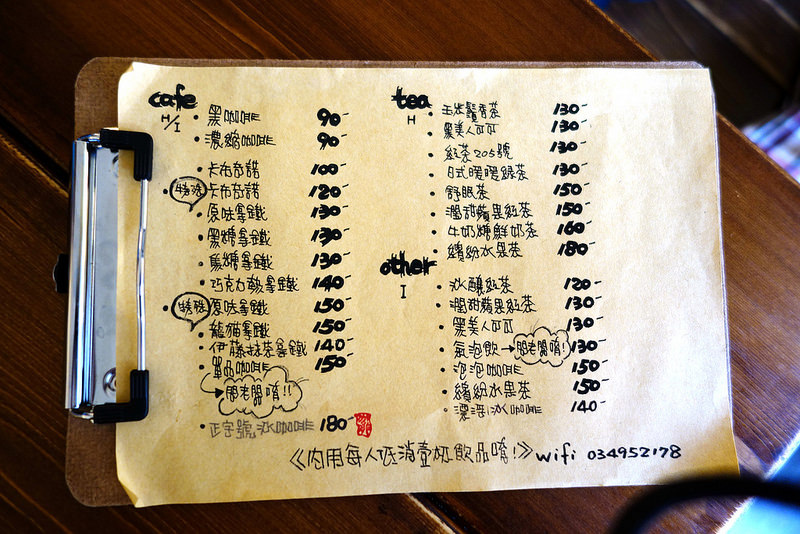 cafe
H/I
黑咖啡 90-
濃縮咖啡 90-
卡布奇諾 100-
特殊 卡布奇諾 120-
原味拿鐵 130-
黑糖拿鐵 130-
焦糖拿鐵 130-
巧克力酸拿鐵 140-
特殊 原味拿鐵 150-
熊貓拿鐵 150-
伊藤抹茶拿鐵 140-
單品咖啡 150-
→問老闆唷!!
正字號冰咖啡 180-
tea
H
玉米鬚香茶 130-
黑美人可可 130-
紅茶205號 130-
日式暖暖綠茶 130-
舒眠茶 150-
潤甜蘋果紅茶 150-
牛奶糖鮮奶茶 160-
繽紛水果茶 180-
other
I
冰釀紅茶 120-
潤甜蘋果紅茶 130-
黑美人可可 130-
氣泡飲→問老闆唷! 130-
泡泡咖啡 150-
繽紛水果茶 150-
漂浮冰咖啡 140-
《內用每人低消壹杯飲品唷!》wifi 034952178